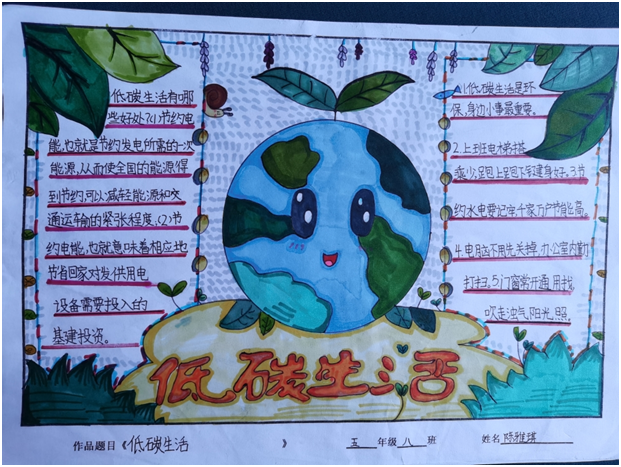 低碳生活有哪
些好处?(1)节约电
能,也就是节约发电所需的一次
能源,从而使全国的能源得
到节约,可以减轻能源和交
通运输的紧张程度。(2)节
约电能,也就意味着相应地
节省国家对发供用电
设备需要投入的
基建投资。
1.低碳生活是环
保,身边小事最重要。
2.上班电梯
乘少,
3.节
约水电要记牢,千家万户节能
4.电脑不用先关掉,办公室内勤
打扫。5.门窗常开通
吹走浊气阳光照。
低碳生活
作品题目《低碳生活 》 五 年级 八 班 姓名 陈雅琪